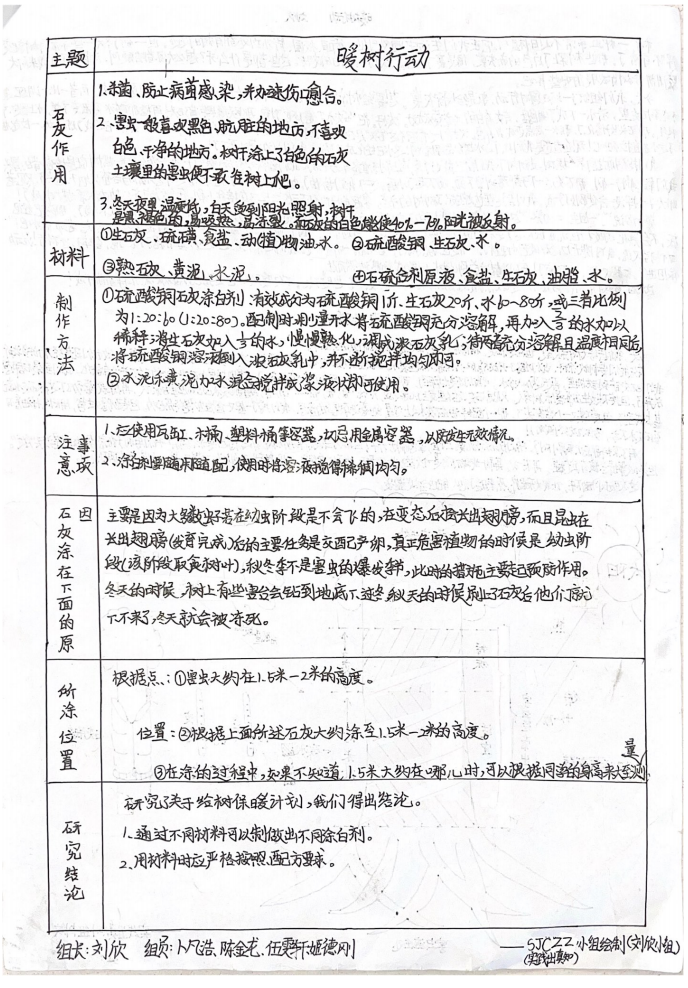 主题 暖树行动
石灰作用
1.杀菌,防止病菌感染,并加速伤口愈合。
2.害虫一般喜欢黑色、肮脏的地方,不喜欢
白色、干净的地方。树干涂上了白色的石灰
土壤里的害虫便不敢在树上爬。
3.冬天夜里温度低,白天受到阳光照射,树干
是黑褐色的,易吸热,易冻裂。而石灰的白色能使40%-70%阳光被反射。
材料
①生石灰、硫磺、食盐、动(植)物油、水。 ②硫酸铜、生石灰、水。
③熟石灰、黄泥、水泥。 ④石硫合剂原液、食盐、生石灰、油脂、水。
制作方法
①硫酸铜石灰涂白剂:有效成分为石硫酸铜1斤、生石灰20斤、水60~80斤,或三者比例
为1:20:60(1:20:80)。配制时用少量开水将石硫酸铜充分溶解,再加入
的水加以
稀释;将生石灰加入
的水,慢慢熟化,调成浓石灰乳;待两者充分溶解且温度相同后,
将石硫酸铜溶液倒入浓石灰乳中,并不断搅拌均匀即可。
②水泥和黄泥加水混合搅拌成浆液状即可使用。
注意事项
1.应使用瓦缸、木桶、塑料桶等容器,切忌用金属容器,以防发生无效情况。
2.涂白剂要随用随配,使用时将溶液搅得稀稠均匀。
石灰涂在下面的原因
主要是因为大多数
在幼虫阶段是不会飞的,在变态后才长出翅膀,而且昆虫在
长出翅膀(发育完成)后的主要任务是交配产卵,真正危害植物的时候是幼虫阶
段(该阶段取食树叶),秋冬季不是害虫的爆发
,此时的
主要起预防作用。
冬天的时候,树上有些害虫会钻到地底下
,秋天的时候刷上了石灰后他们就
下不来了,冬天就会被冻死。
所涂位置
根据点:①害虫大约在1.5米-2米的高度。
位置:②根据上面所述石灰大约涂至1.5米-2米的高度。
③在涂的过程中,如果不知道1.5米大约在哪儿时,可以根据同学的身高来大至测量
研究结论
研究了关于给树保暖计划,我们得出结论。
1.通过不同材料可以制做出不同涂白剂。
2.用材料时应严格按照配方要求。
组长:刘欣 组员:卜凡浩、陈金龙、伍乘轩、姬德刚 ——SJCZZ小组绘制(刘欣小组)
(实践出真知)